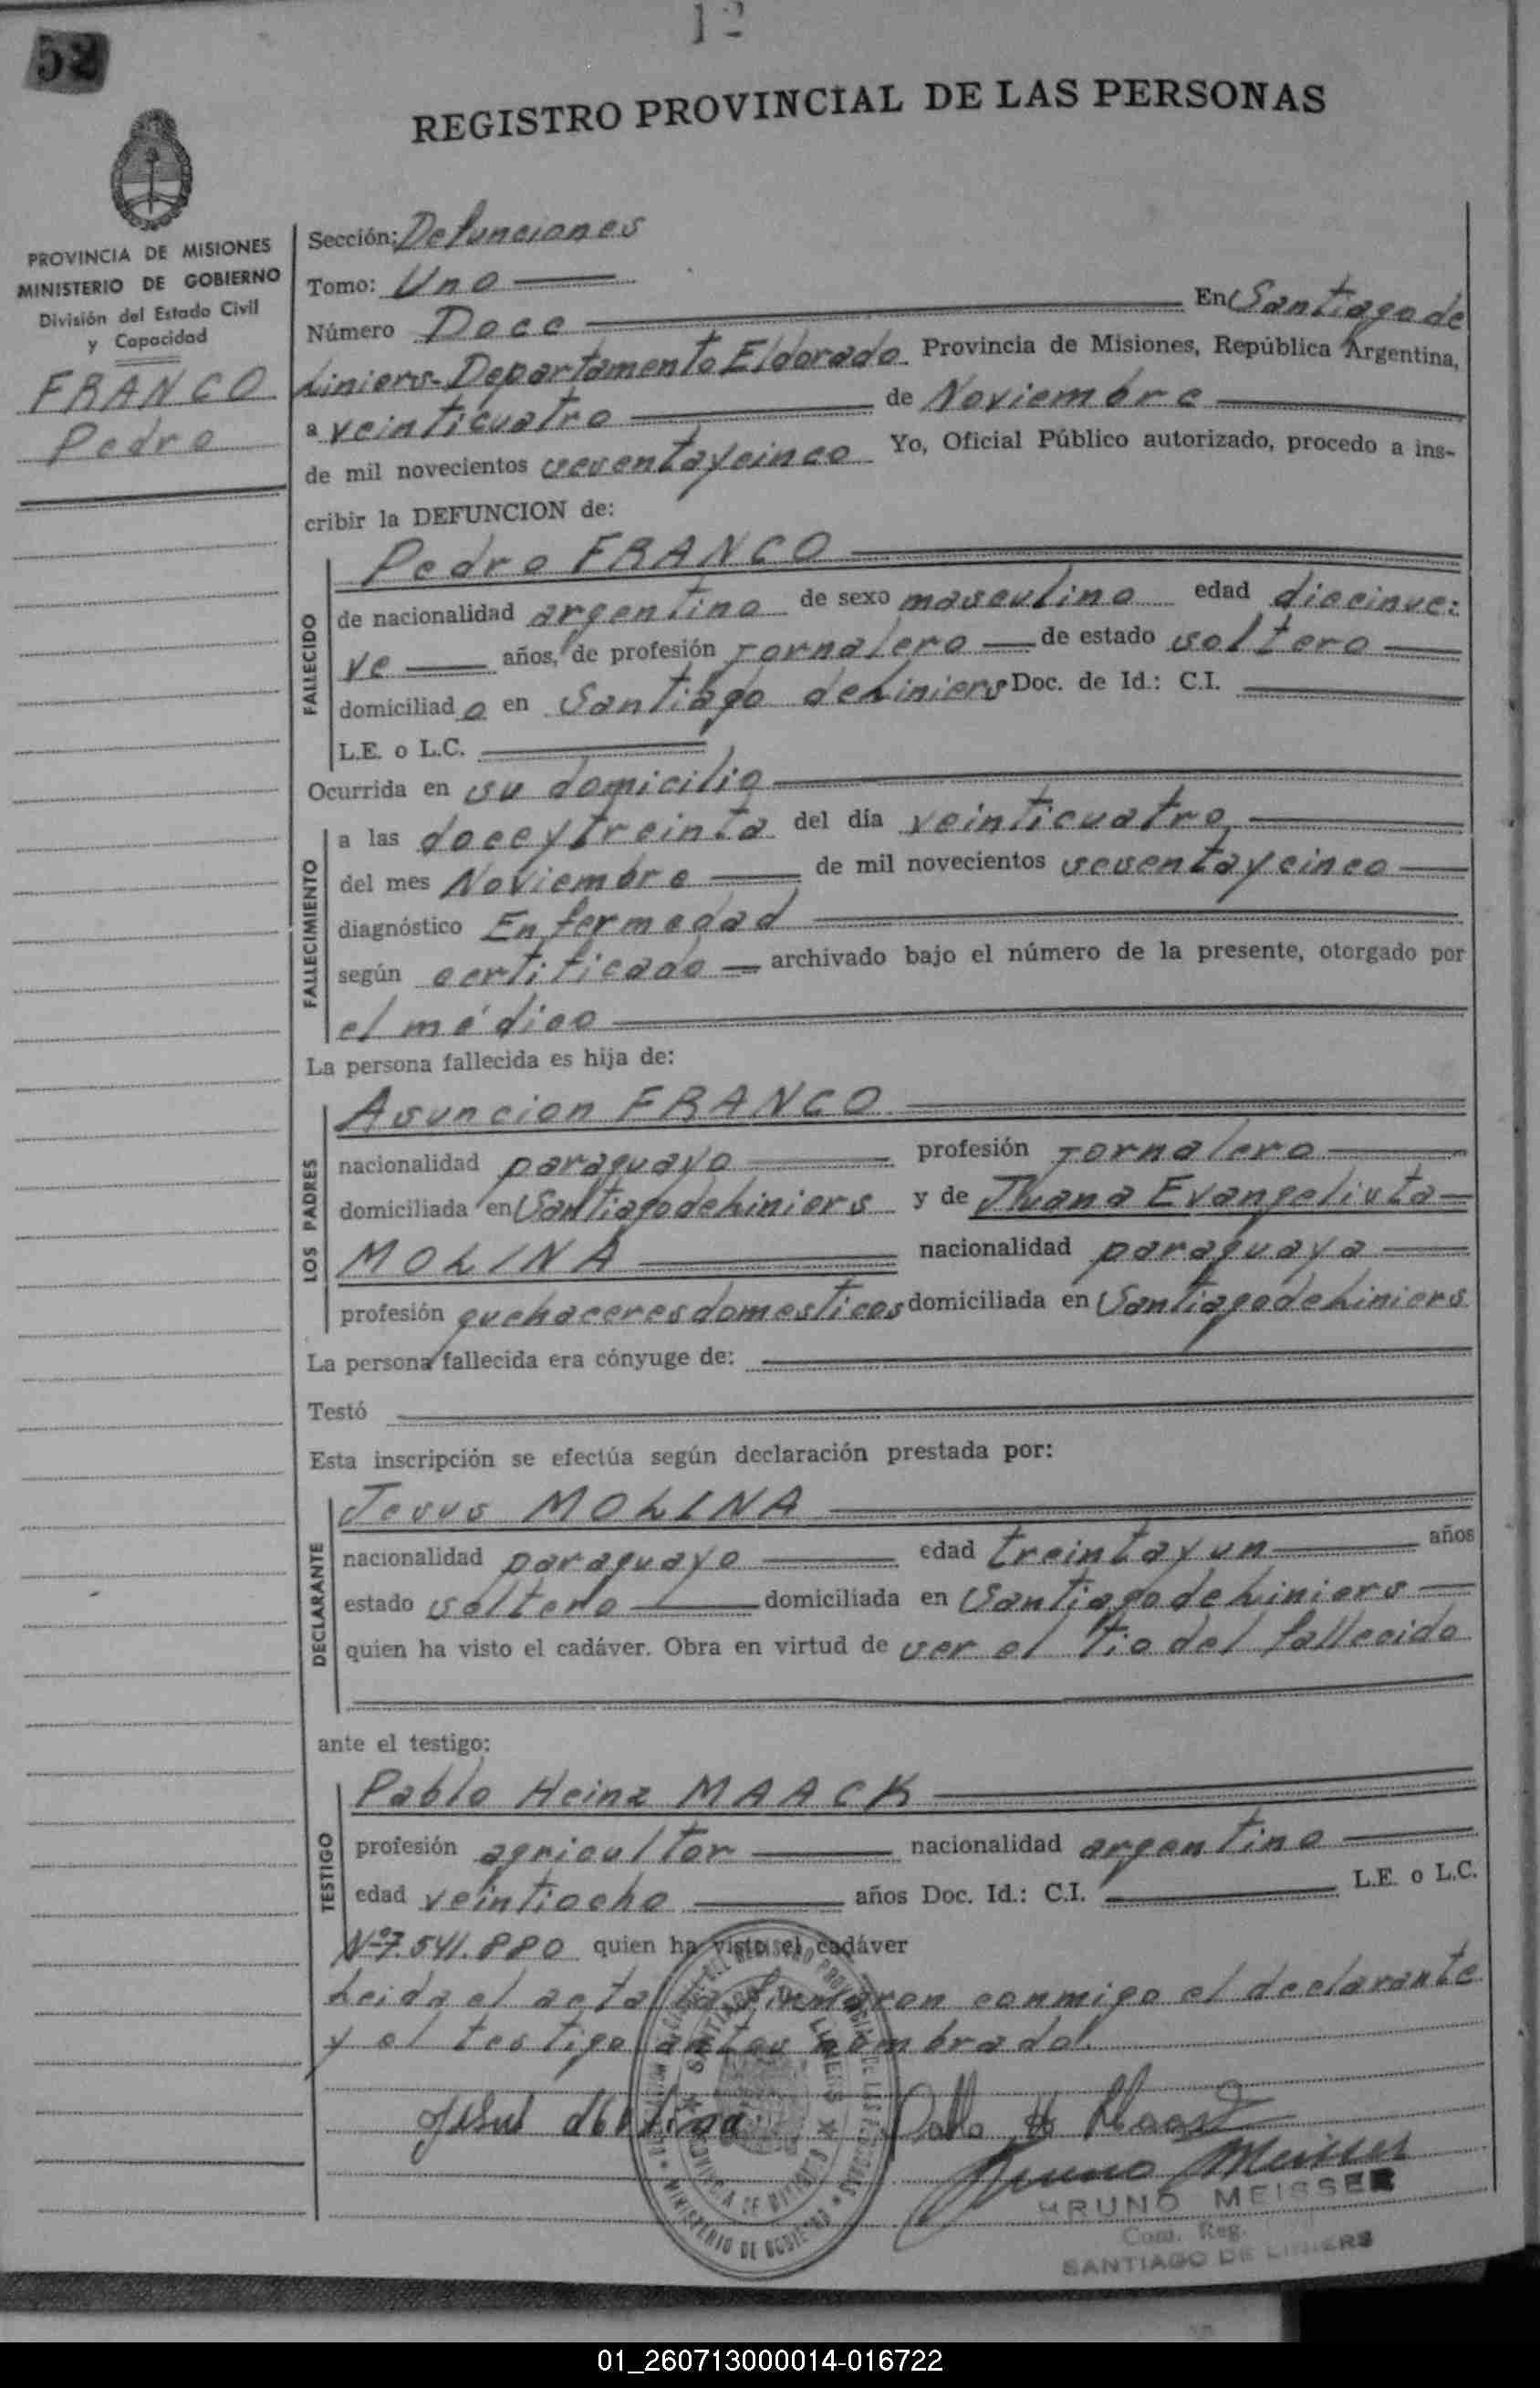 12
52
REGISTRO PROVINCIAL DE LAS PERSONAS
PROVINCIA DE MISIONES
MINISTERIO DE GOBIERNO
División del Estado Civil
y Capacidad
FRANCO
Pedro
Sección: Defunciones
Tomo: Uno
Número Doce En Santiago de
Liniers-Departamento Eldorado Provincia de Misiones, República Argentina,
a veinticuatro de Noviembre
de mil novecientos setentaycinco Yo, Oficial Público autorizado, procedo a ins-
cribir la DEFUNCION de:
FALLECIDO
Pedro FRANCO
de nacionalidad argentina de sexo masculino edad diecinue:
ve años, de profesión Jornalero de estado soltero
domiciliado en Santiago de Liniers Doc. de Id.: C.I.
L.E. o L.C.
Ocurrida en su domicilio
FALLECIMIENTO
a las doceytreinta del día veinticuatro
del mes Noviembre de mil novecientos setentaycinco
diagnóstico Enfermedad
según certificado archivado bajo el número de la presente, otorgado por
el médico
La persona fallecida es hija de:
LOS PADRES
Asuncion FRANCO
nacionalidad paraguayo profesión Jornalero
domiciliada en Santiago de Liniers y de Juana Evangelista
MOLINA nacionalidad paraguaya
profesión quehaceres domesticos domiciliada en Santiago de Liniers
La persona fallecida era cónyuge de:
Testó
Esta inscripción se efectúa según declaración prestada por:
DECLARANTE
Jesus MOLINA
nacionalidad paraguayo edad treintayun años
estado soltero domiciliada en Santiago de Liniers
quien ha visto el cadáver. Obra en virtud de ser el tio del fallecido
ante el testigo:
TESTIGO
Pablo Heinz MAACK
profesión agricultor nacionalidad argentino
edad veintiocho años Doc. Id.: C.I. L.E. o L.C.
Nº 7.541.880 quien ha visto el cadáver
Leida el acta la firmaron conmigo el declarante
y el testigo antes nombrado.
Jesus Molina Pablo H Maack
Bruno Meisser
BRUNO MEISSER
Com. Reg.
SANTIAGO DE LINIERS
REGISTRO PROVINCIAL DE LAS PERSONAS
MINISTERIO DE GOBIERNO
SANTIAGO DE LINIERS
PROVINCIA DE MISIONES
01_260713000014-016722